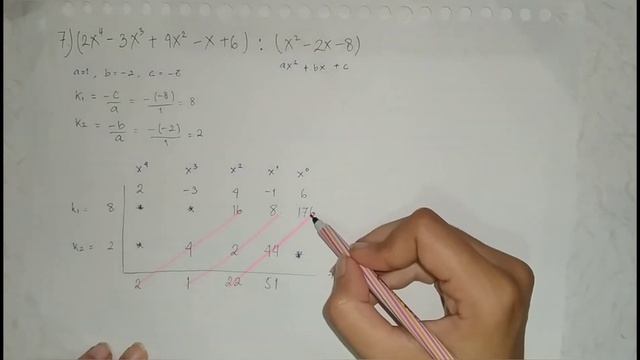 7.) (2x⁴ - 3x³ + 4x² - x + 6) : (x² - 2x - 8)
ax² + bx + c
a=1, b=-2, c=-8
K₁ = -c/a = -(-8)/1 = 8
K₂ = -b/a = -(-2)/1 = 2
x⁴ x³ x² x¹ x⁰
2 -3 4 -1 6
k₁ = 8 * * 16 8 176
k₂ = 2 * 4 2 44 *
2 1 22 51